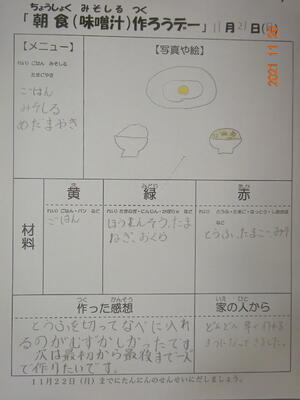 ちょうしょく みそしる つく
「朝食(味噌汁)作ろうデー」11月21日(日)
2021 11 23
【メニュー】
【写真や絵】
れい) ごはん みそしる
たまごやき
ごはん
みそしる
めだまやき
材料
き
黄
みどり
緑
あか
赤
れい) ごはん・パン など
れい) たまねぎ・にんじん・かぼちゃ など
れい) とうふ・たまご・なっとう・しおさば など
ごはん
ほうれんそう、たま
ねぎ、おくら
とうふ、たまご、みそ
つく かんそう
作った感想
いえ ひと
家の人から
とうふを切ってなべに入れ
るのがむずかしかったです。
次は最初から最後まで一人
で作りたいです。
どんどん 早く作れる
ようになってきました。
11月22日(月)までにたんにんのせんせいにだしましょう。